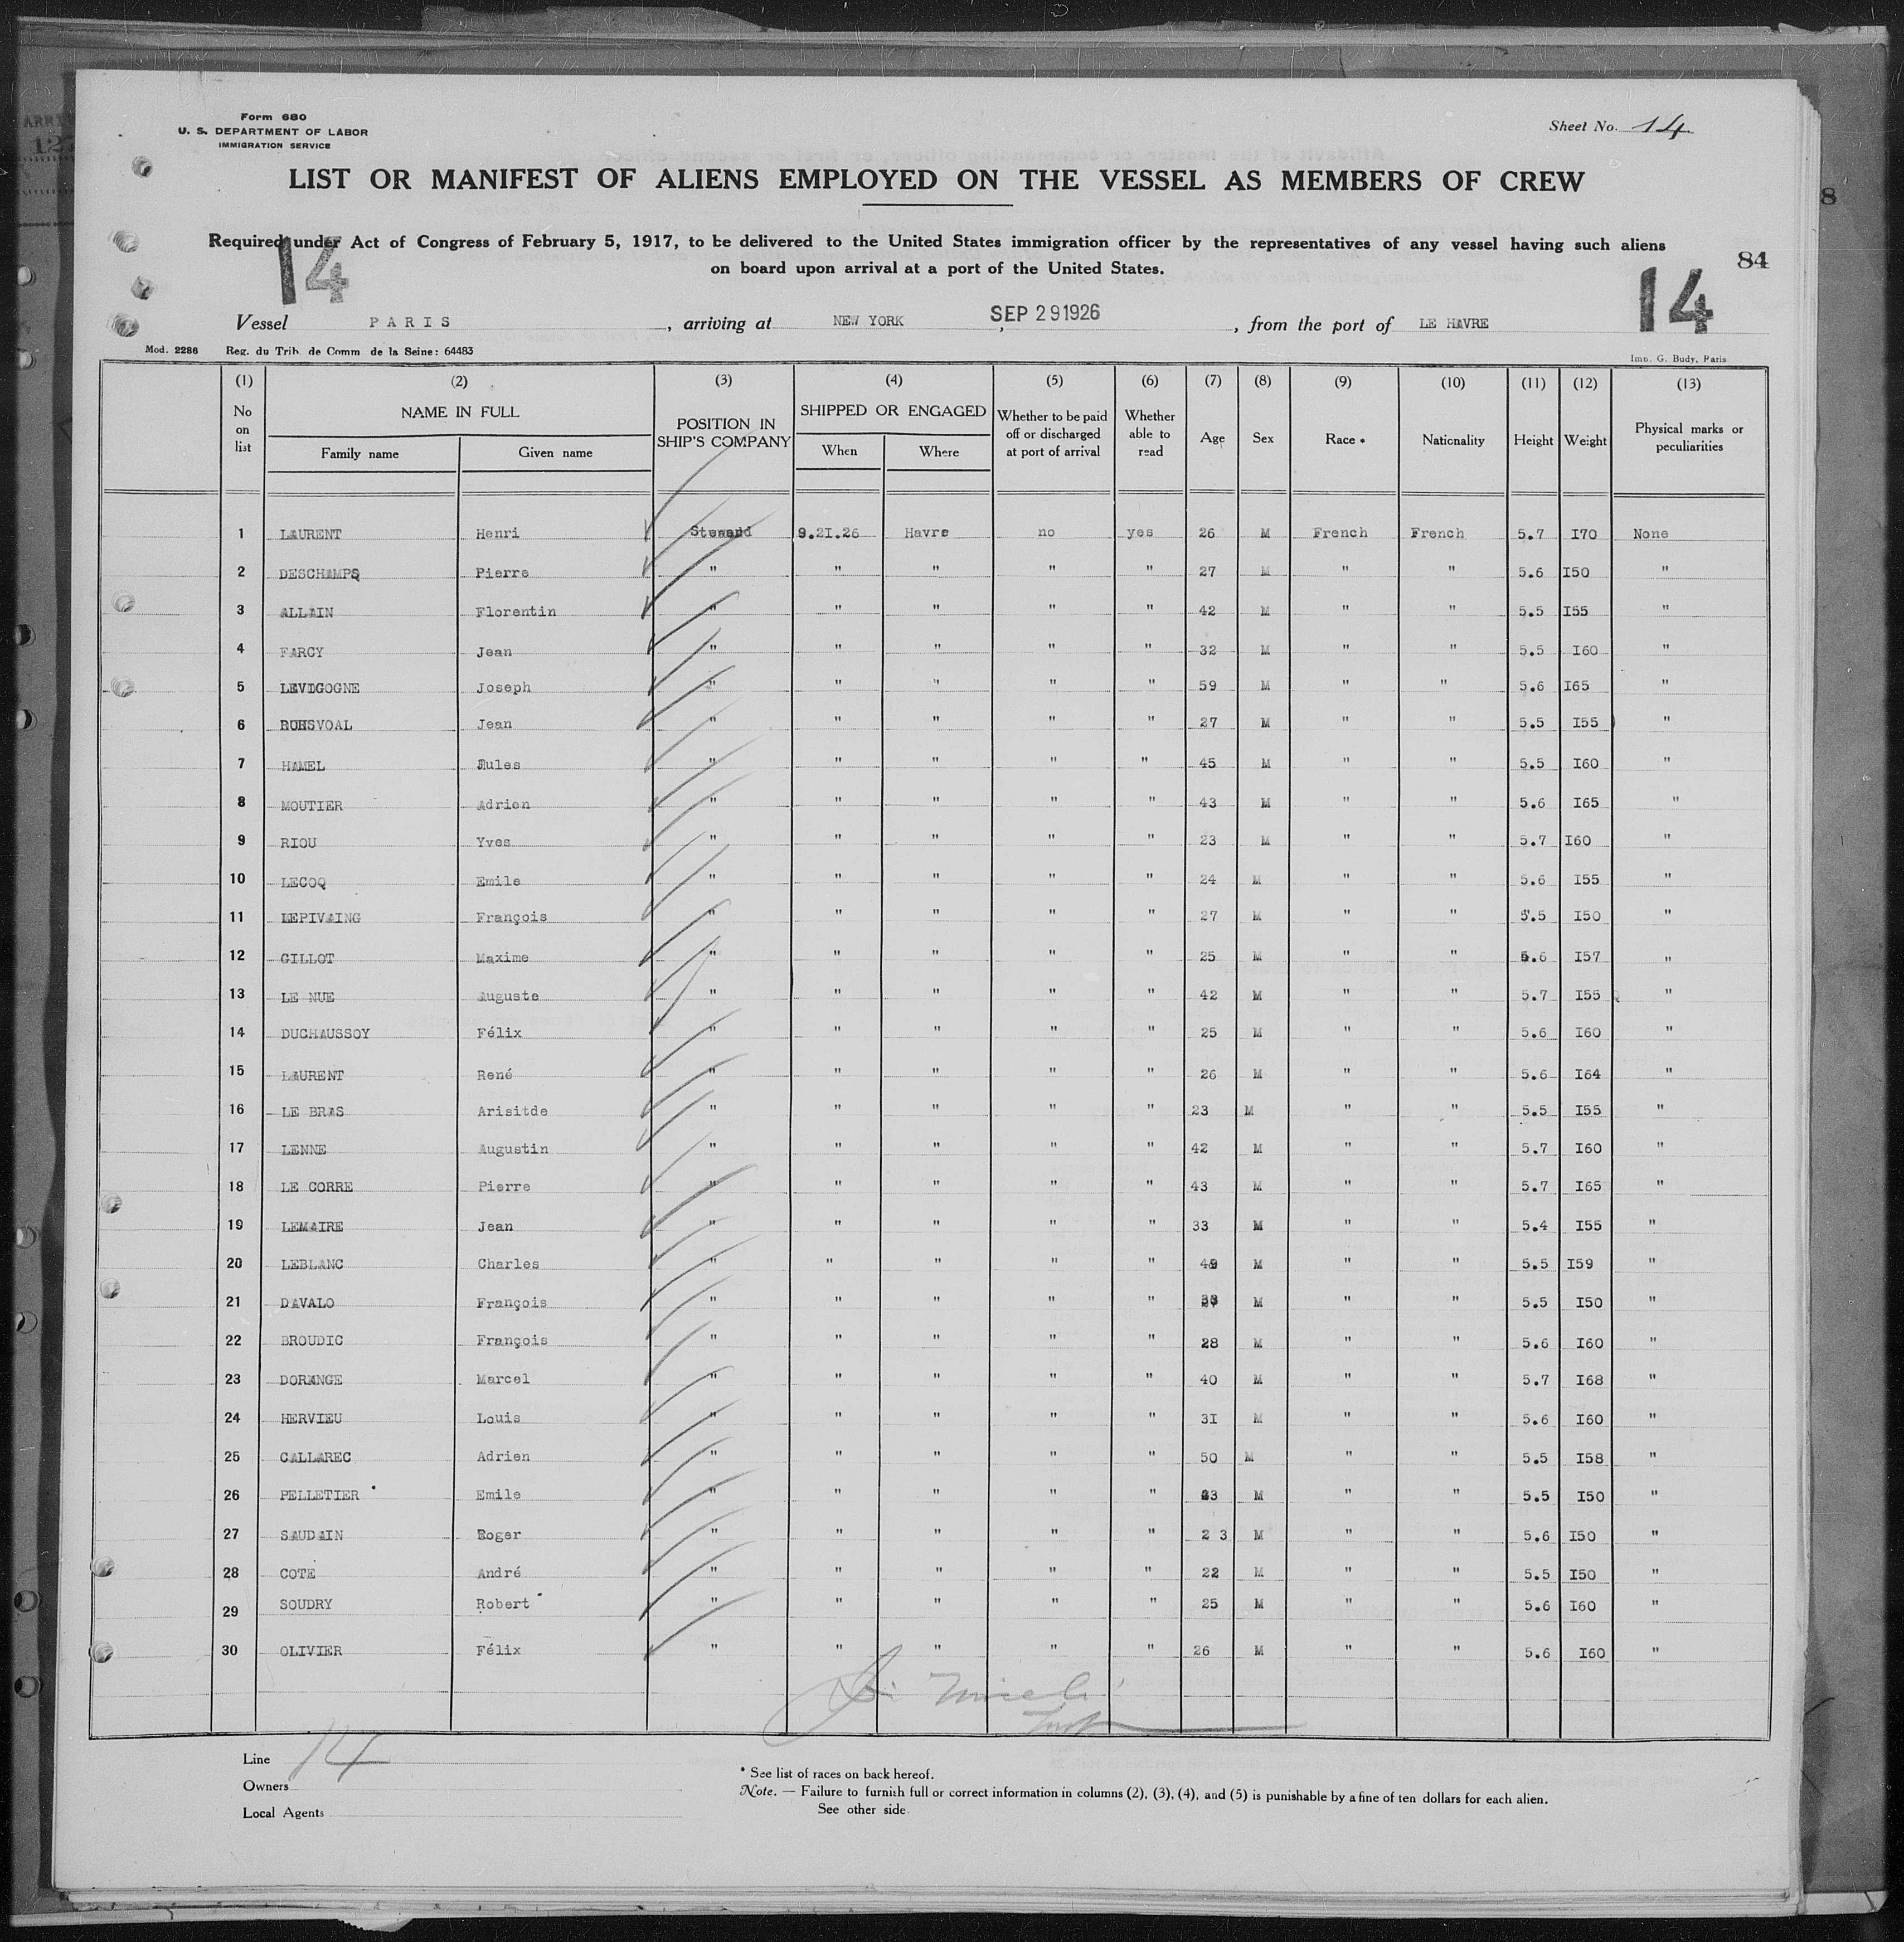 Form 680
U. S. DEPARTMENT OF LABOR
IMMIGRATION SERVICE
Sheet No. 14
LIST OR MANIFEST OF ALIENS EMPLOYED ON THE VESSEL AS MEMBERS OF CREW
Required under Act of Congress of February 5, 1917, to be delivered to the United States immigration officer by the representatives of any vessel having such aliens
on board upon arrival at a port of the United States.
84
14
14
Vessel PARIS, arriving at NEW YORK, SEP 29 1926, from the port of LE HAVRE
Mod. 2286 Reg. du Trib. de Comm de la Seine: 64483
Imp. G. Budy, Paris
(1) (2) (3) (4) (5) (6) (7) (8) (9) (10) (11) (12) (13)
No on list NAME IN FULL Family name Given name POSITION IN SHIP'S COMPANY SHIPPED OR ENGAGED When Where Whether to be paid off or discharged at port of arrival Whether able to read Age Sex Race * Nationality Height Weight Physical marks or peculiarities
1 LAURENT Henri Steward 9.21.26 Havre no yes 26 M French French 5.7 I70 None
2 DESCHAMPS Pierre " " " " " 27 M " " 5.6 I50 "
3 ALLAIN Florentin " " " " " 42 M " " 5.5 I55 "
4 FARCY Jean " " " " " 32 M " " 5.5 I60 "
5 LEVIGOGNE Joseph " " " " " 59 M " " 5.6 I65 "
6 Jean " " " " " 27 M " " 5.5 I55 "
7 HAMEL Jules " " " " " 45 M " " 5.5 I60 "
8 MOUTIER Adrien " " " " " 43 M " " 5.6 I65 "
9 RIOU Yves " " " " " 23 M " " 5.7 I60 "
10 LECOQ Emile " " " " " 24 M " " 5.6 I55 "
11 LEPIVAING François " " " " " 27 M " " 5.5 I50 "
12 GILLOT Maxime " " " " " 25 M " " 5.6 I57 "
13 LE NUE Auguste " " " " " 42 M " " 5.7 I55 "
14 DUCHAUSSOY Félix " " " " " 25 M " " 5.6 I60 "
15 LAURENT René " " " " " 26 M " " 5.6 I64 "
16 LE BRAS Arisitde " " " " " 23 M " " 5.5 I55 "
17 LENNE Augustin " " " " " 42 M " " 5.7 I60 "
18 LE CORRE Pierre " " " " " 43 M " " 5.7 I65 "
19 LEMAIRE Jean " " " " " 33 M " " 5.4 I55 "
20 LEBLANC Charles " " " " " M " " 5.5 I59 "
21 DAVALO François " " " " " M " " 5.5 I50 "
22 BROUDIC François " " " " " 28 M " " 5.6 I60 "
23 DORANGE Marcel " " " " " 40 M " " 5.7 I68 "
24 HERVIEU Louis " " " " " 31 M " " 5.6 I60 "
25 CALLAREC Adrien " " " " " 50 M " " 5.5 I58 "
26 PELLETIER Emile " " " " " M " " 5.5 I50 "
27 SAUDAIN Roger " " " " " 2 3 M " " 5.6 I50 "
28 COTE André " " " " " 22 M " " 5.5 I50 "
29 SOUDRY Robert " " " " " 25 M " " 5.6 I60 "
30 OLIVIER Félix " " " " " 26 M " " 5.6 I60 "
Line 14
Owners
Local Agents
* See list of races on back hereof.
Note. — Failure to furnish full or correct information in columns (2), (3), (4), and (5) is punishable by a fine of ten dollars for each alien.
See other side.